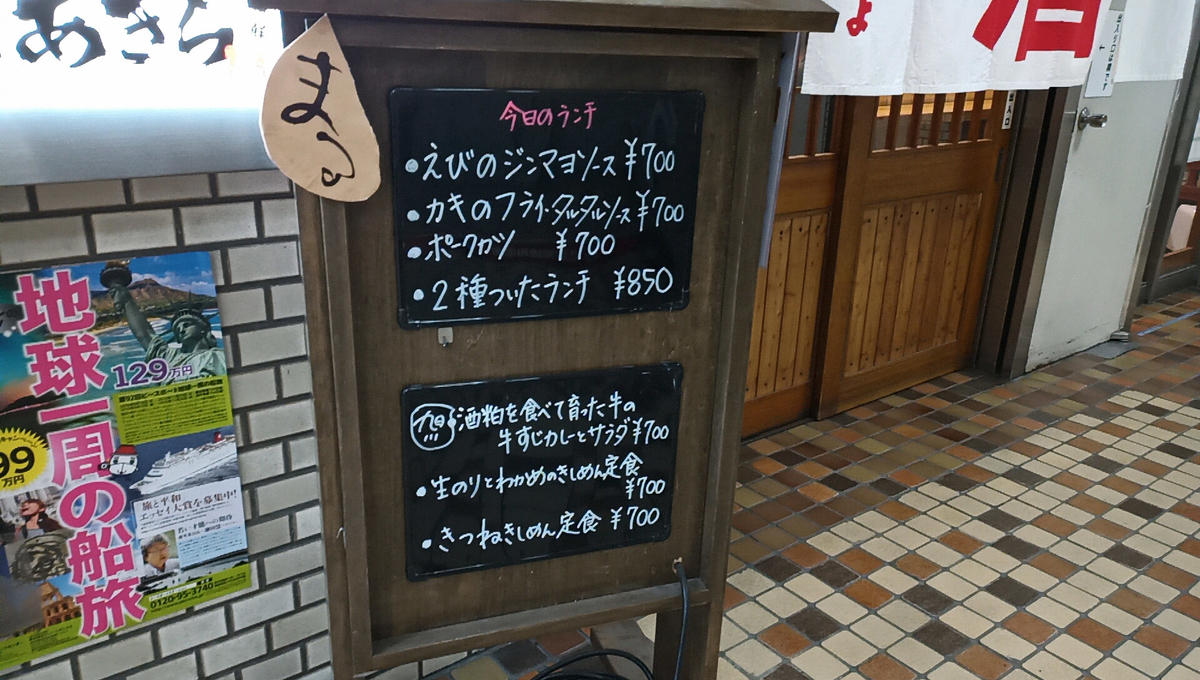 あきら
まる
今日のランチ
・えびのジンマヨソース ¥700
・カキのフライ・タルタルソース ¥700
・ポークカツ ¥700
・2種ついたランチ ¥850
酒粕を食べて育った牛の
牛すじカレーとサラダ ¥700
・生のりとわかめのきしめん定食
¥700
・きつねきしめん定食 ¥700
酒
地球一周の船旅
129万円
99
万円
旅と平和
エッセイ大賞を募集中!
0120-95-3740